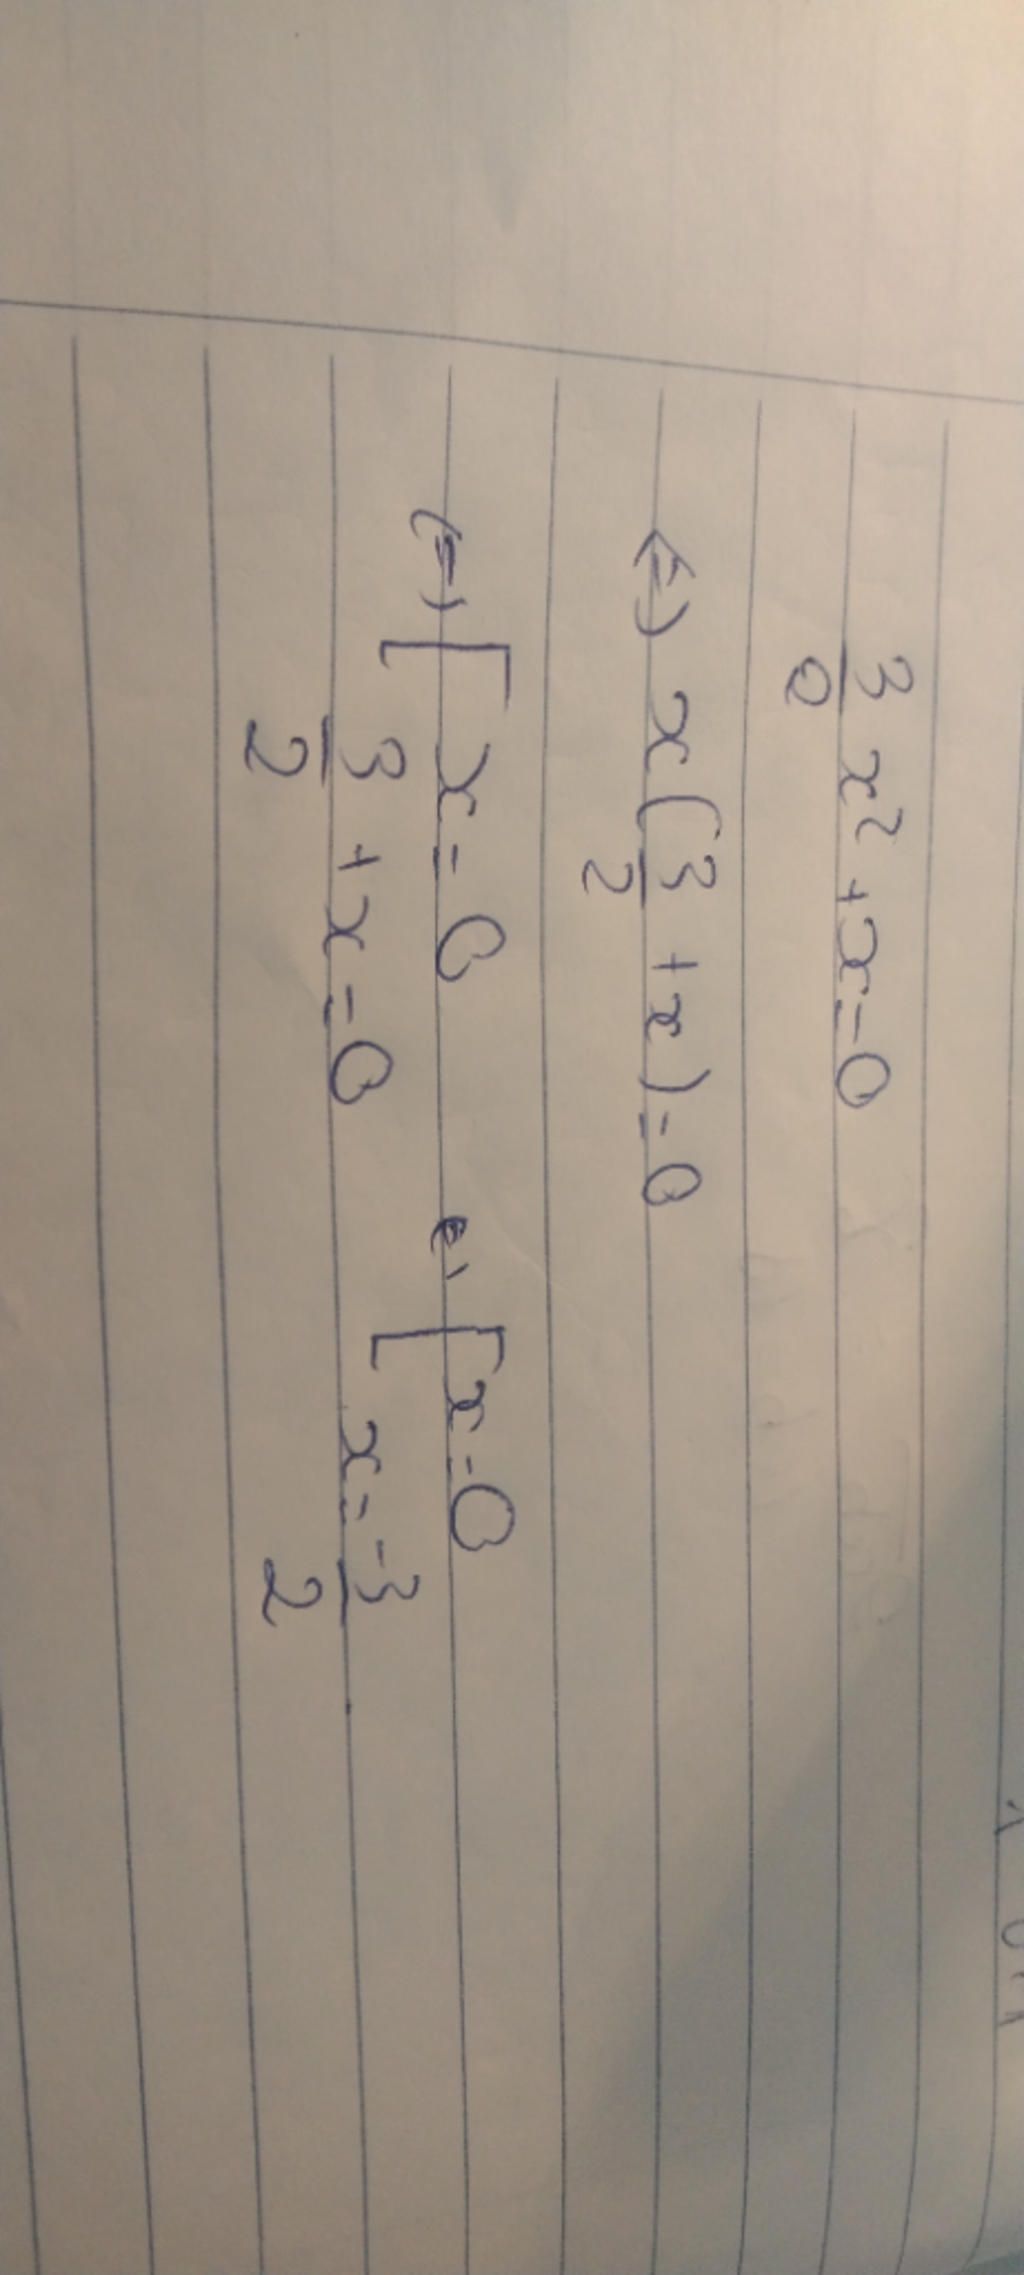 3/2 x² + x = 0
<=> x(3/2 + x) = 0
<=> [ x = 0 <=> [ x = 0
3/2 + x = 0 x = -3/2